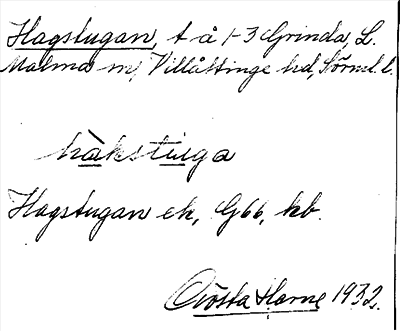 Hagstugan, t å 1-3 Grinda, L.
Malma sn, Villåttinge hd, Sörml. l.
hàkstuga
Hagstugan ek, G66, kb.
Gösta 1932.